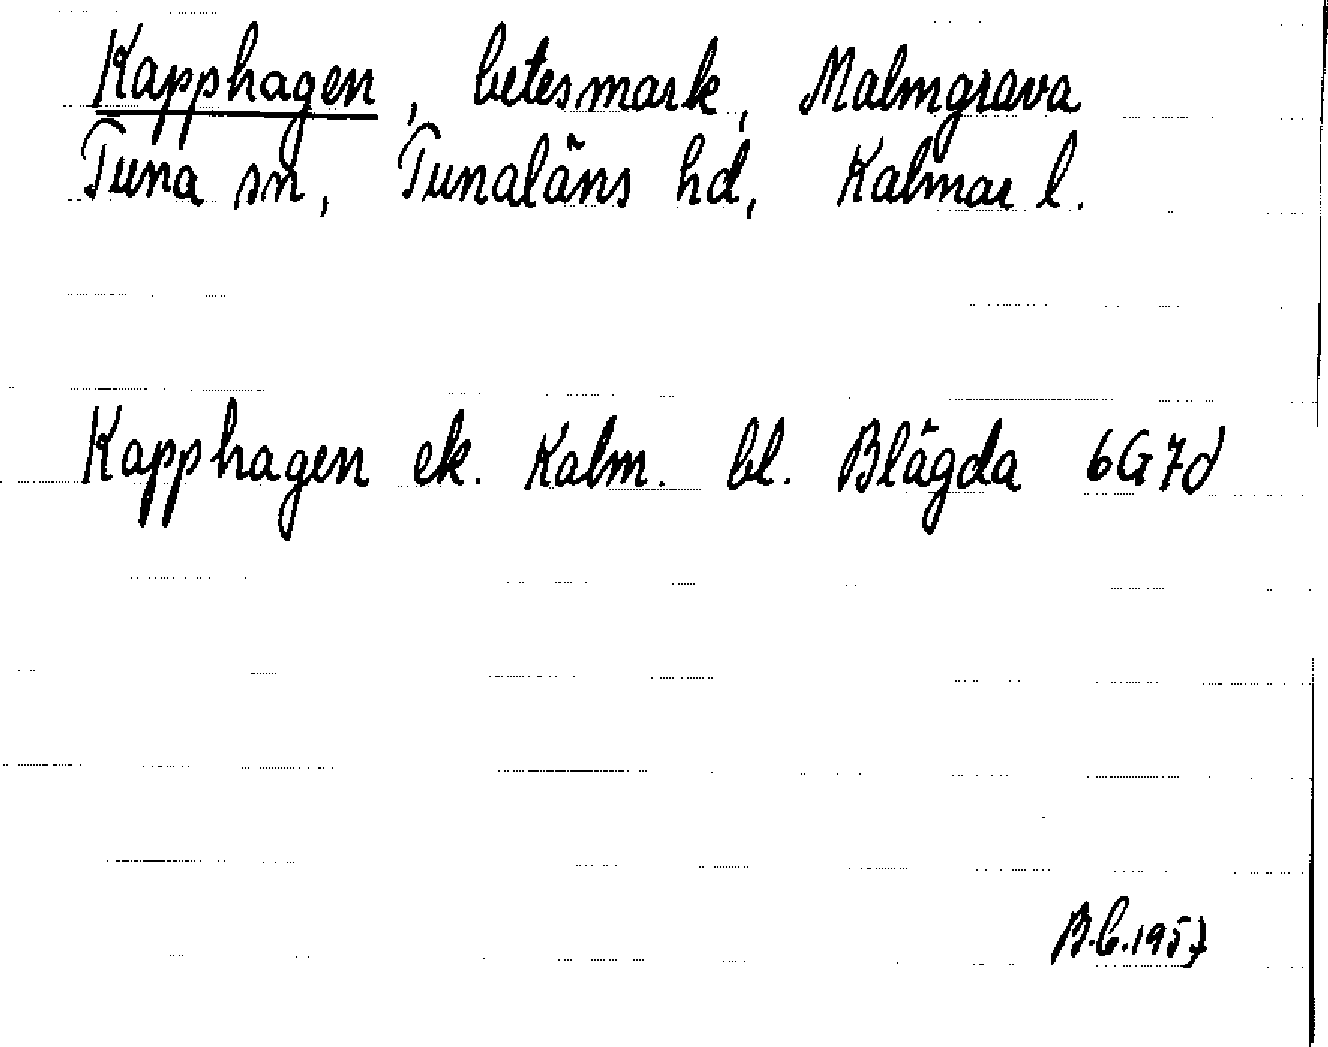 Kapphagen, betesmark, Malmgrava
Tuna sn, Tunaläns hd, Kalmar l.
Kapphagen ek. Kalm. bl. Blägda 6G7d
B.C.1957